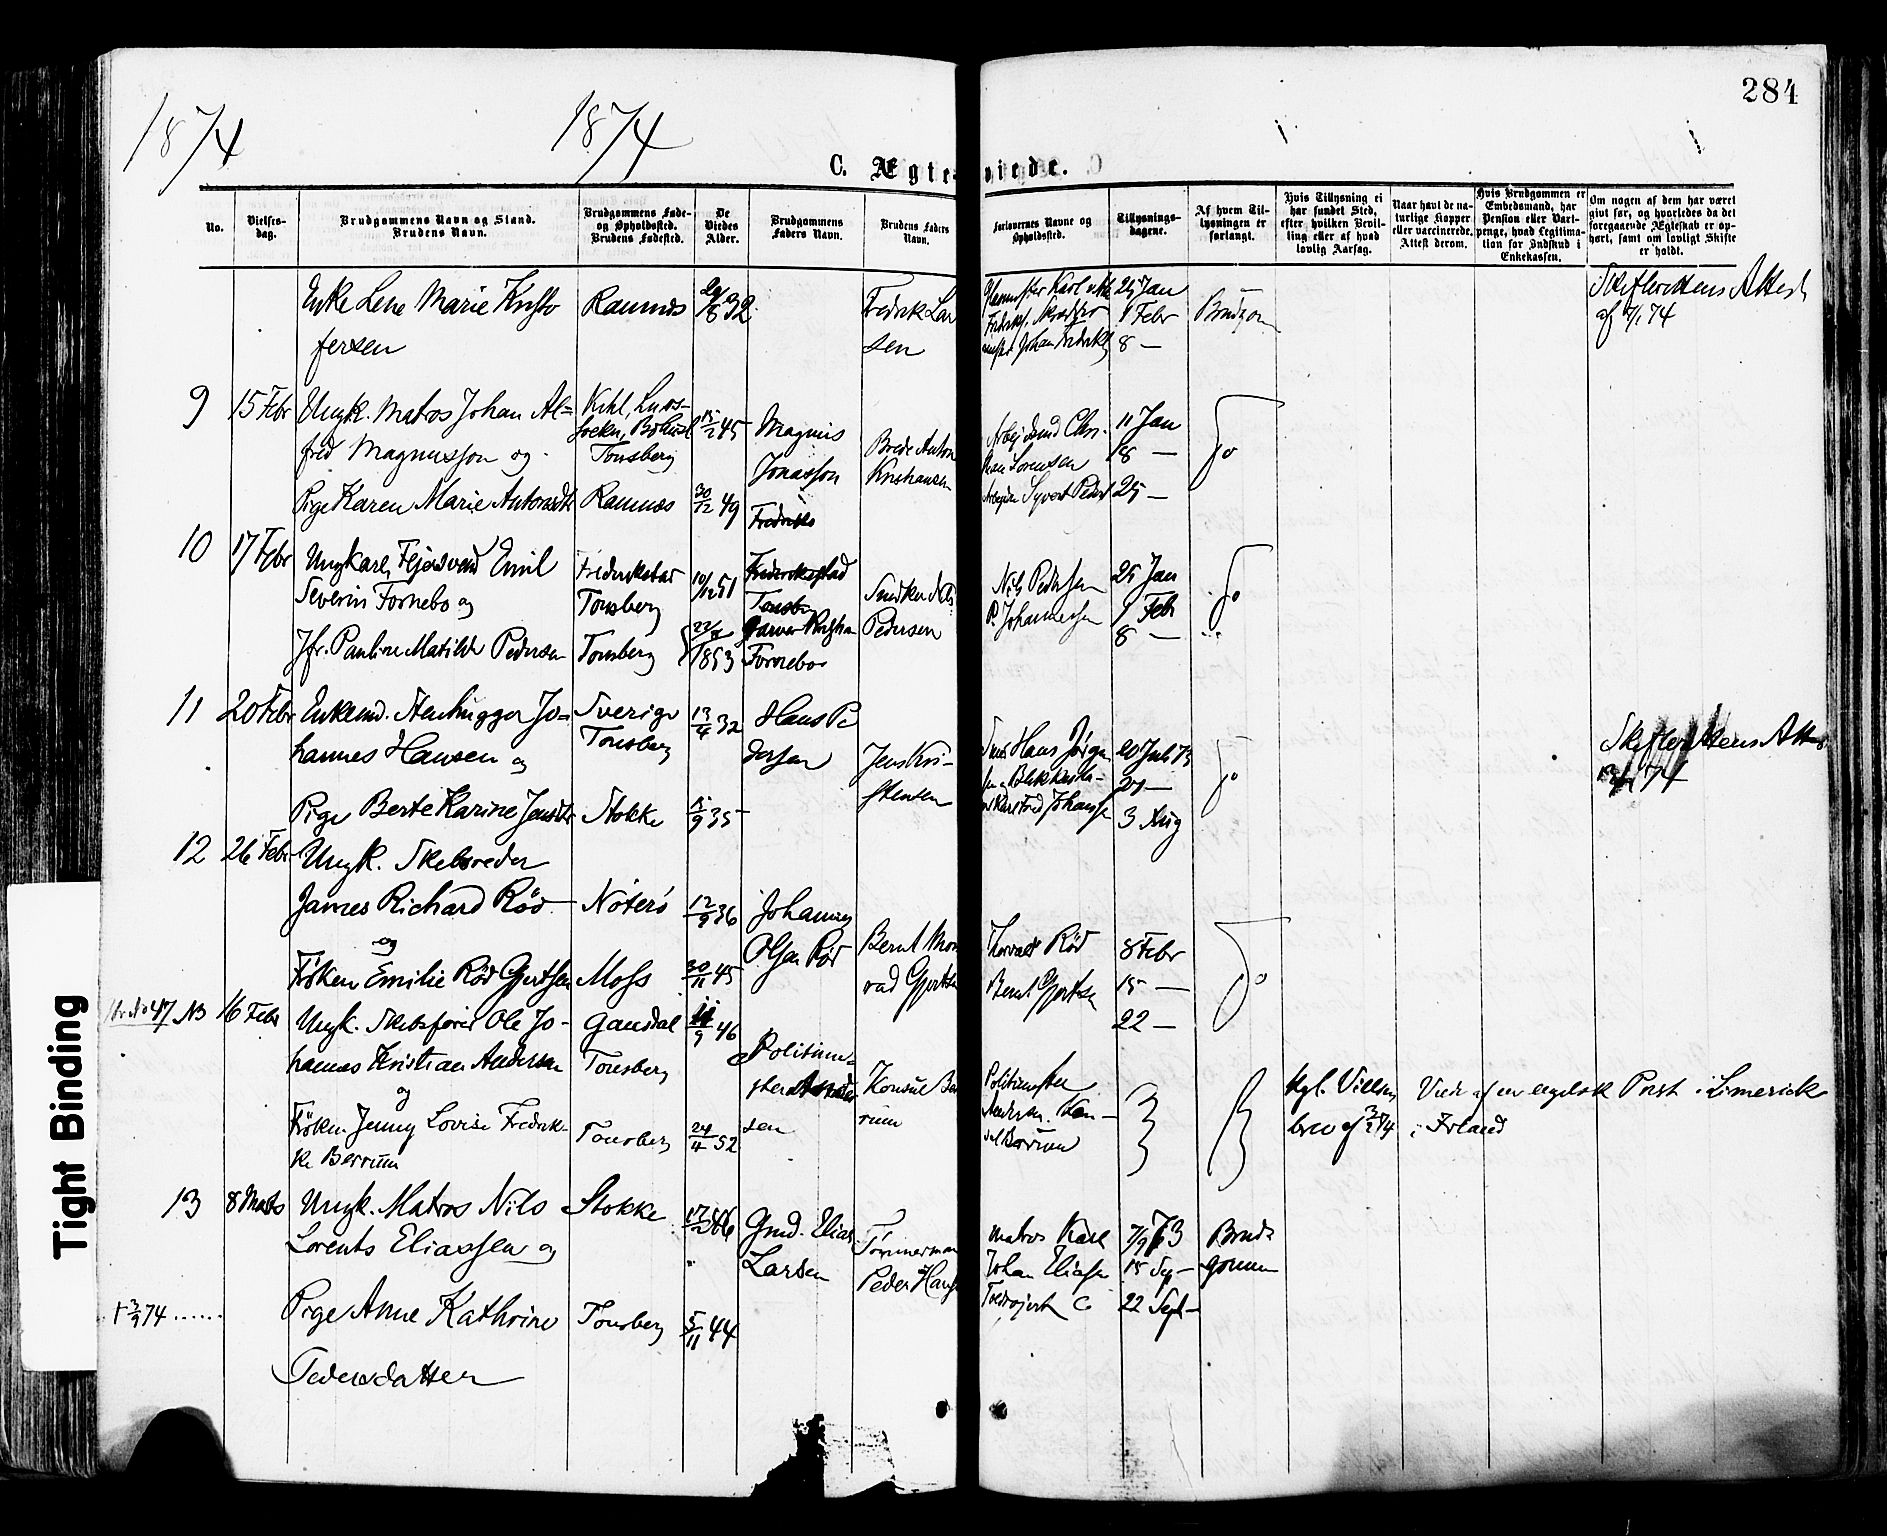 284
1874
1874
C. Ægteviede.
No.
Vielses-
dag.
Brudgommens Navn og Stand.
Brudens Navn.
Brudgommens Føde-
og Opholdssted.
Brudens Fødested.
De
Viedes
Alder.
Brudgommens
Faders Navn.
Brudens Faders
Navn.
Forlovernes Navne og
Opholdssted.
Tillysnings-
dagene.
Af hvem Til-
lysningen er
forlangt.
Hvis Tillysning ei
har fundet Sted,
efter hvilken Bevil-
ling eller af hvad
lovlig Aarsag.
Naar havt de na-
turlige Kopper
eller vaccinerede.
Attest derom.
Hvis Brudgommen er
Embedsmand, har
Pension eller Vart-
penge, hvad Legitima-
tion for Indskud i
Enkekassen.
Om nogen af dem har været
givt før, og hvorledes da det
foregaaende Ægteskab er op-
hørt, samt om lovligt Skifte
er holdt.
Enke Lene Marie Kristo
fersen
Ramnes
32
Fredrik Lar
sen
25 Jan
1 Febr
8 —
Brudgom
Skifterettens Attest
af 74
9
15 Febr
Ungk. Matros Johan Al=
fred Magnusson og
Pige Karen Marie Antonsdtr
Tonsberg
Ramnes
15/2 45
30/12 49
Magnus
Jonasson
Brede Anton
Kristiansen
Sorensen
11 Jan
18 —
25 —
Do
10
17 Febr
Ungkarl, Emil
Severin Fornebo og
Jfr. Pauline Matilde Pedersen
Frederikstad
Tonsberg
Tonsberg
10/12 51
1853
Fredrikstad
Tonsb
Garver
Fornebo
Snedker
Pedersen
Nils Pedersen
P. Johannesen
25 Jan
1 Feb
8 —
Do
11
20 Febr
Enkemd. Stenhugger Jo=
hannes Hansen og
Pige Berte Karine Jensdtr
Sverige
Tonsberg
Stokke
13/4 32
15/9 35
Hans Pe
dersen
Jens Kri-
stensen
Hans Jørgen
20 Juli 73
27 —
3 Aug
Do
Skifterettens Att
74
12
26 Febr
Ungk. Skibsreder
James Richard Rød
og
Frøken Emilie Rød Gjertsen
Nøterø
Moss
12/9 36
30/11 45
Johannes
Olsen Rød
Bernt Mon
rad Gjertsen
Thorvald Rød
Bernt Gjertsen
8 Febr
15 —
22 —
Do
47 NB
16 Febr
Ungk. Skibsfører Ole Jo-
hannes Kristian Andersen
og
Frøken Jenny Lovise Fredrik-
ke Berrum
Gausdal
Tonsberg
Tonsberg
46
24/4 52
Politime=
ster Ander
sen
Konsul Ber
rum
Politimester
Andersen. Kon-
sul Berrum
Kgl. Villses
brev af 3/2 74
Viede af en engelsk Prest i Limerick
i Irland
13
8 Marts
Ungk. Matros Nils
Lorents Eliassen og
Pige Anne Kathrine
Pedersdatter
Stokke
Tonsberg
17/2 46
5/11 44
Gmd. Elias
Larsen
Tømmermand
Peder Hans
Matros Karl
Johan Eliasen
7/9 73
15 Sep —
22 Sept —
Brud=
gommen
+ 3/9 74 ......
Tight Binding